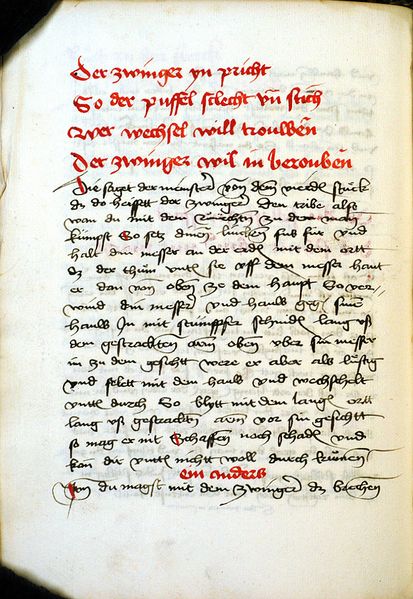 Der zwinger yn pricht
So der puffel sclecht vn̄ stich
Wer wechsel will trouwen
Der zwinger wil in berouben
Die saget der meinster von dem vierdē stuck
dz do heissett der zwinger Den tribe also
wan du mit dem zuvechten zu dem man
kumpst So setz dinen lincken fuß für vnd
halt din messer an der erden mit dem ortt
der sie vff dem messer haut
er dan von oben ze dem haupt So ver
wind din messer vnd hauw geg sinē
hauw In mit stumpffer schnidē lang vß
dem gestrackten arm oben vber sin messer
in zu dem gesicht were er aber als lüstig
vnd felett mit dem hauw vnd wechschelt
durch So blytt mit dem langē ortt
lang vß gestracktē arm vor sin gesicht
so mag er nit schaffen noch schadē vnd
kan dir nichtt woll durch kumen
ein anders
Item du magst mit dem zwinger dz brechen